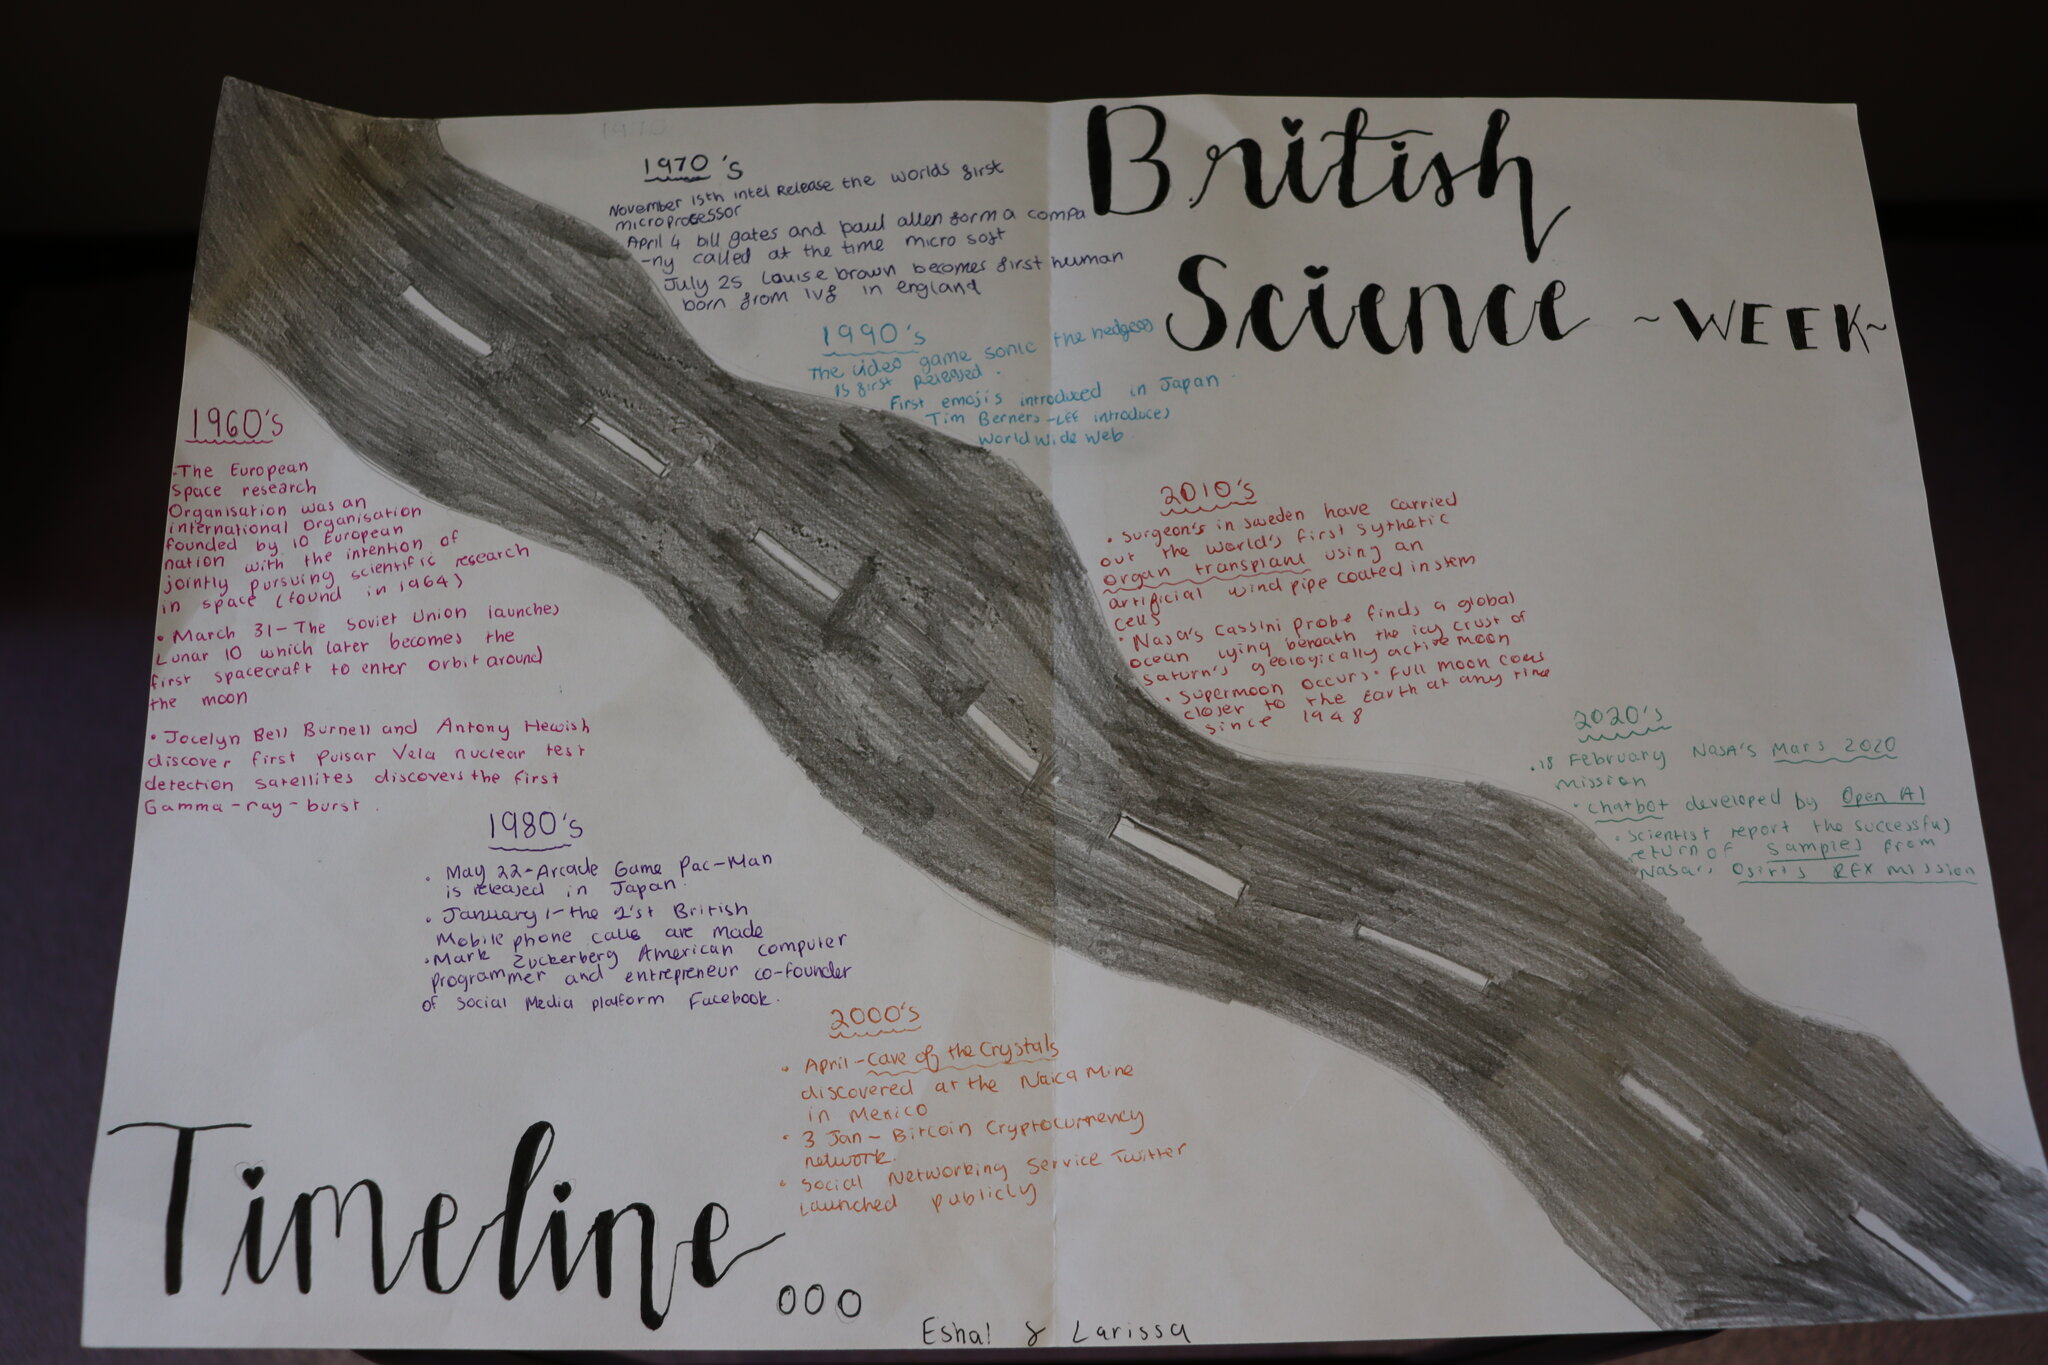 British
Science ~WEEK~
1970
1970's
November 15th intel Release the worlds first
microprocessor
April 4 bill gates and paul allen form a compa
-ny called at the time micro soft
July 25 Louise brown becomes first human
born from IVF in england
1990's
The video game sonic the hedgeog
is first released.
First emojis introduced in Japan
Tim Berners-LEE introduces
World Wide Web
1960's
-The European
Space research
Organisation was an
international Organisation
founded by 10 European
nation with the intention of
jointly pursuing scientific research
in space (found in 1964)
• March 31- The Soviet Union launches
Lunar 10 which later becomes the
first spacecraft to enter orbit around
the moon
• Jocelyn Bell Burnell and Antony Hewish
discover first Pulsar Vela nuclear test
detection satellites discovers the first
Gamma-ray-burst.
2010's
• Surgeon's in Sweden have carried
out the world's first sythetic
organ transplant using an
artificial wind pipe coated in stem
cells
• Nasa's Cassini Probe finds a global
ocean lying beneath the icy crust of
Saturn's geologically active moon
• Supermoon occurs. Full moon
closer to the Earth at any time
since 1948
2020's
.18 February NASA's Mars 2020
mission
• Chatbot developed by Open AI
• Scientist report the successful
return of samples from
Nasa's Osiris REX mission
1980's
• May 22-Arcade Game Pac-Man
is released in Japan.
• January 1-the 1'st British
Mobile phone calls are made
• Mark Zuckerberg American computer
programmer and entrepreneur co-founder
of Social Media platform Facebook.
2000's
• April-Cave of the Crystals
discovered at the Naica Mine
in Mexico
• 3 Jan- Bitcoin Cryptocurrency
network.
• Social Networking Service Twitter
launched publicly
Timeline...
Eshal & Larissa